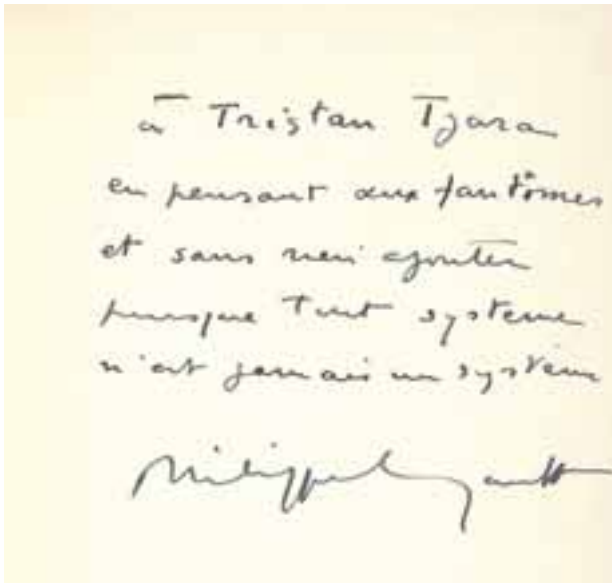 à Tristan Tzara
en pensant aux fantômes
et sans rien ajouter
puisque tout système
n'est jamais un système
Philippe